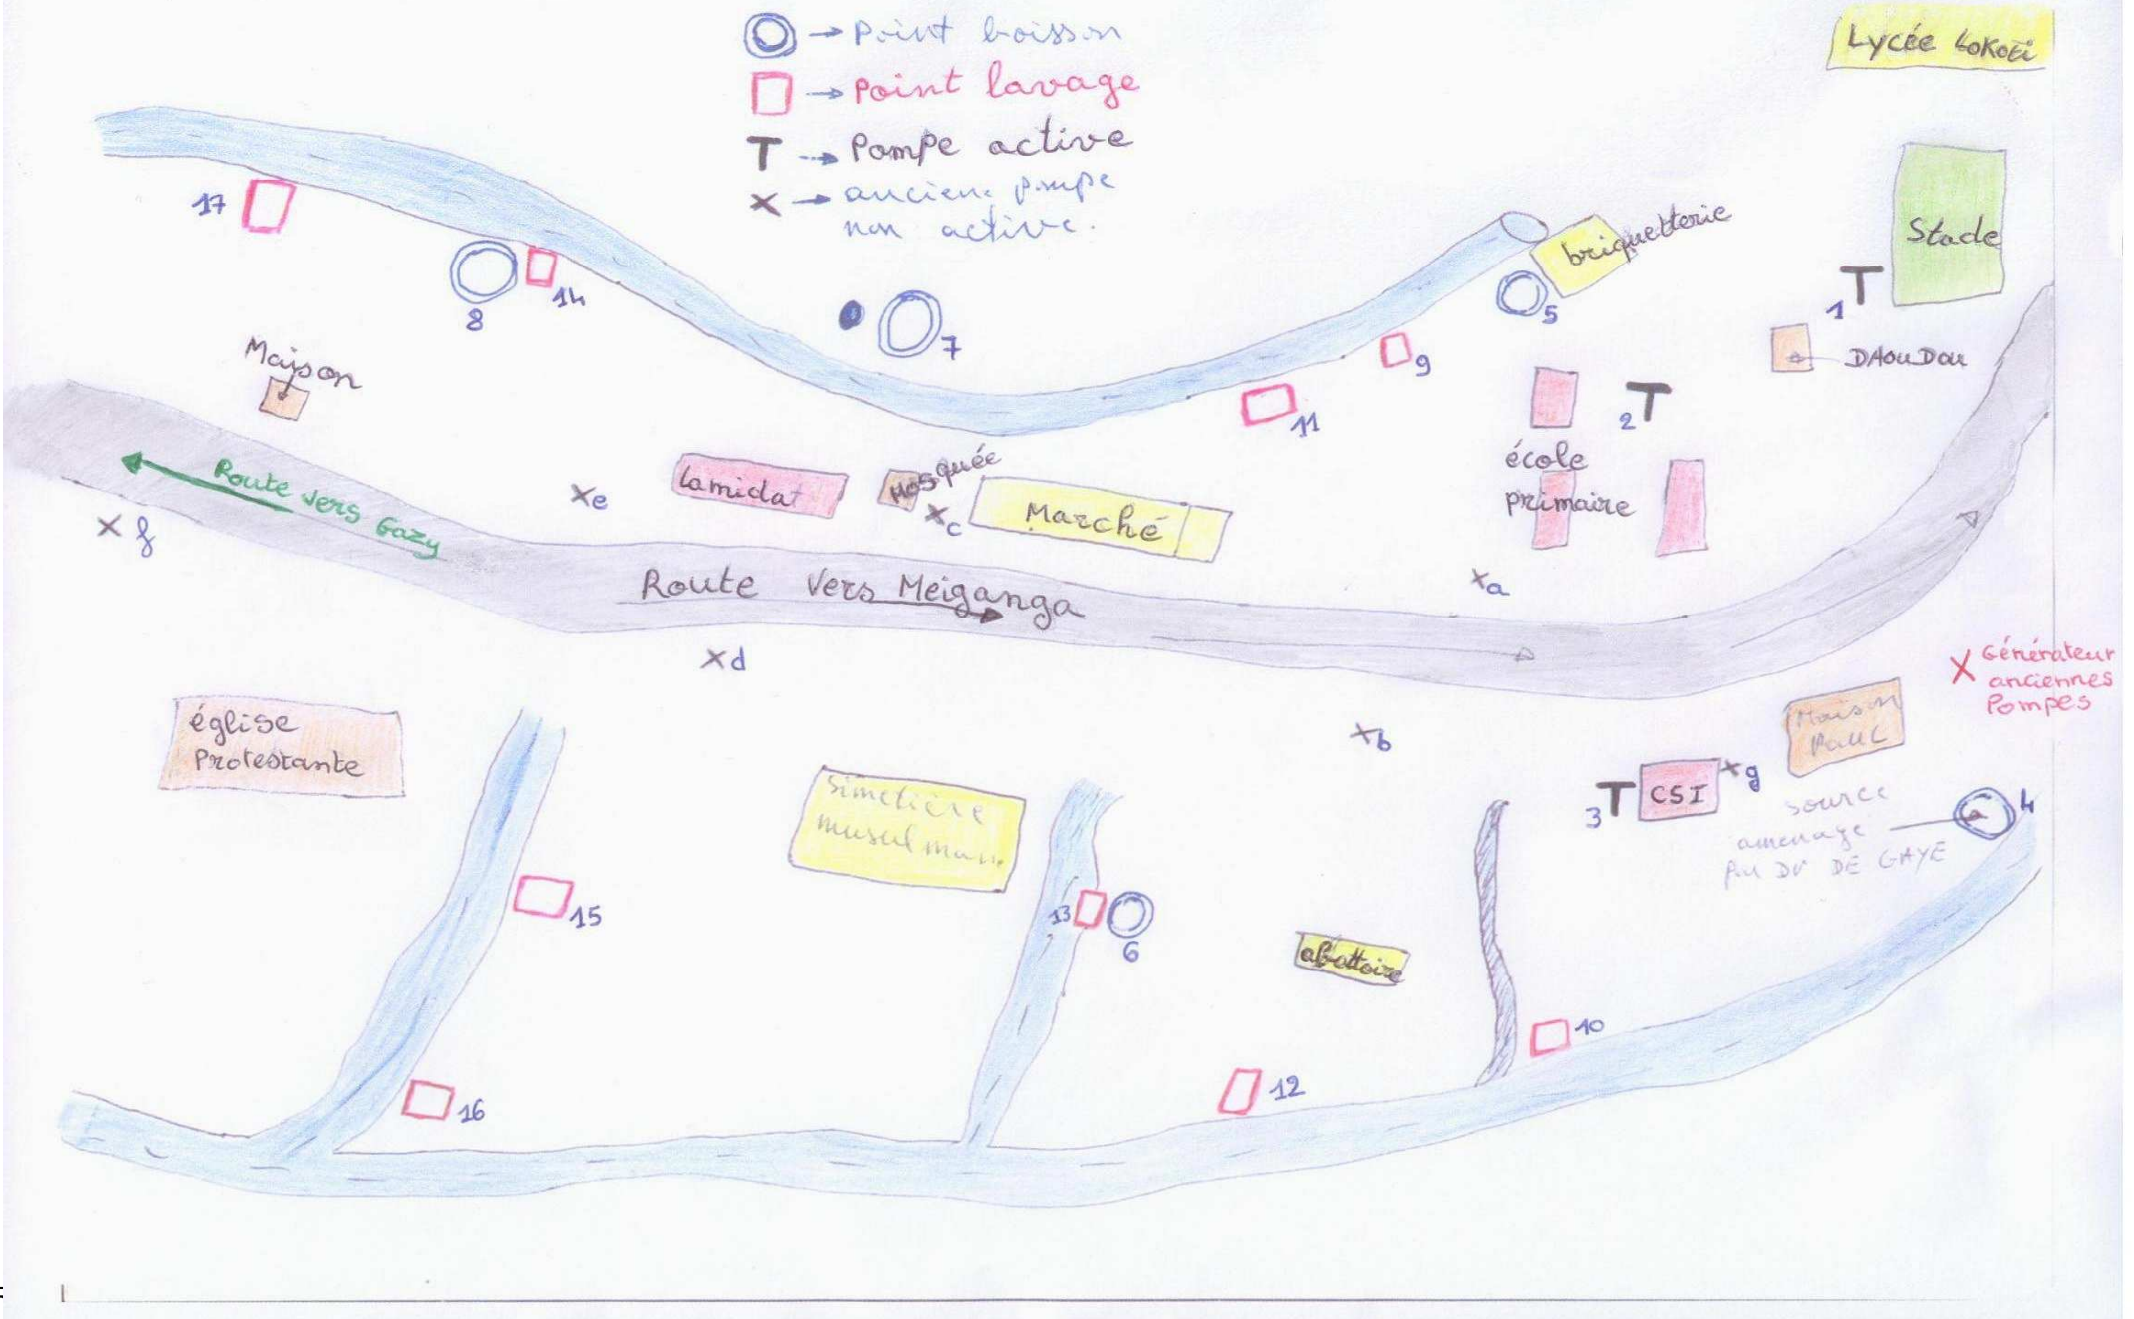 Point boisson
Point lavage
T → Pompe active
x → ancien. pompe
non active.
Lycée Lokoti
17
8
14
7
briquetterie
5
Stade
1
DAOUDOU
Maison
9
11
2
école
primaire
lamidat
Mosquée
xc
Marché
xe
Route vers Gazy
x f
Route Vers Meiganga
xa
xd
xb
X Générateur
anciennes
Pompes
église
Protestante
Maison
PAUL
3
CSI
xg
Simetière
musulman
source
amenage
PAR Dr DE GAYE
4
15
13
6
abattoire
10
16
12